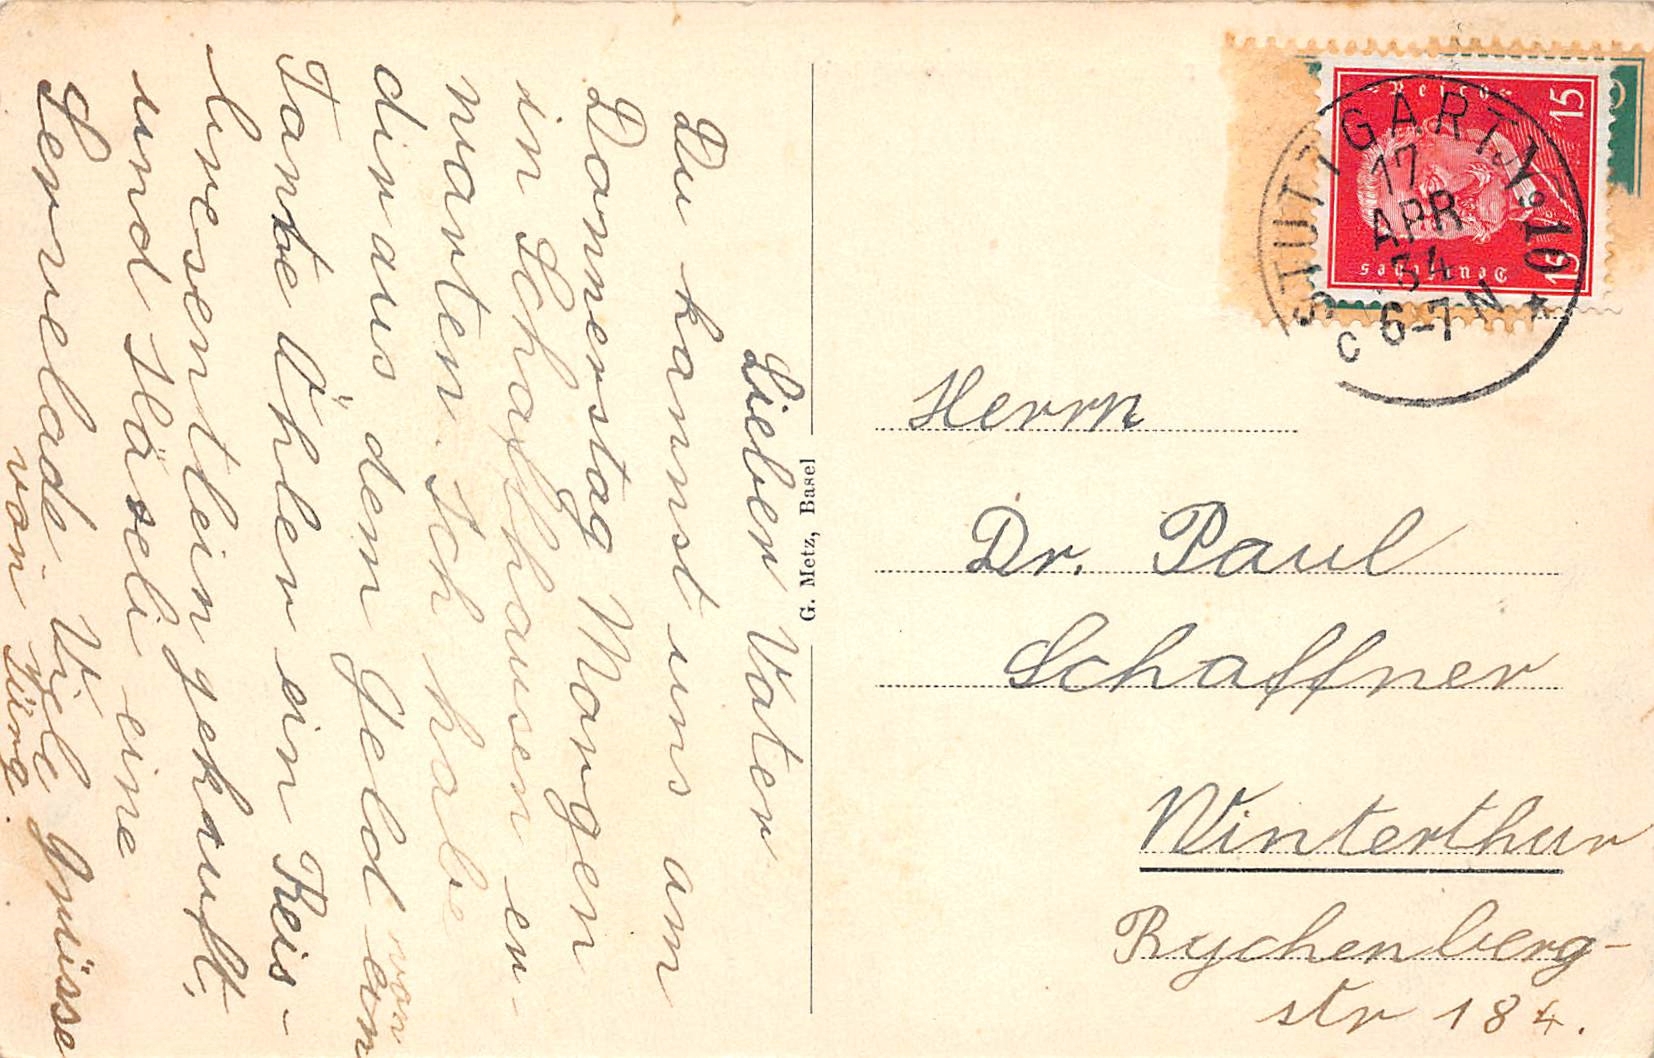 Lieber Vater
Du kannst uns am
Donnerstag Morgen
in Schaffhausen er-
warten. Ich habe
diraus dem Geld von
Tante Öhler ein Reis-
und Häseli eine
Servelade. Viele Grüsse
von Jürg.
G. Metz, Basel
Deutsches Reich
15
15
STUTTGART No 10
17
APR
34
6-7 N
C
Herrn
Dr. Paul
Schaffner
Winterthur
Rychenberg-
str 184.